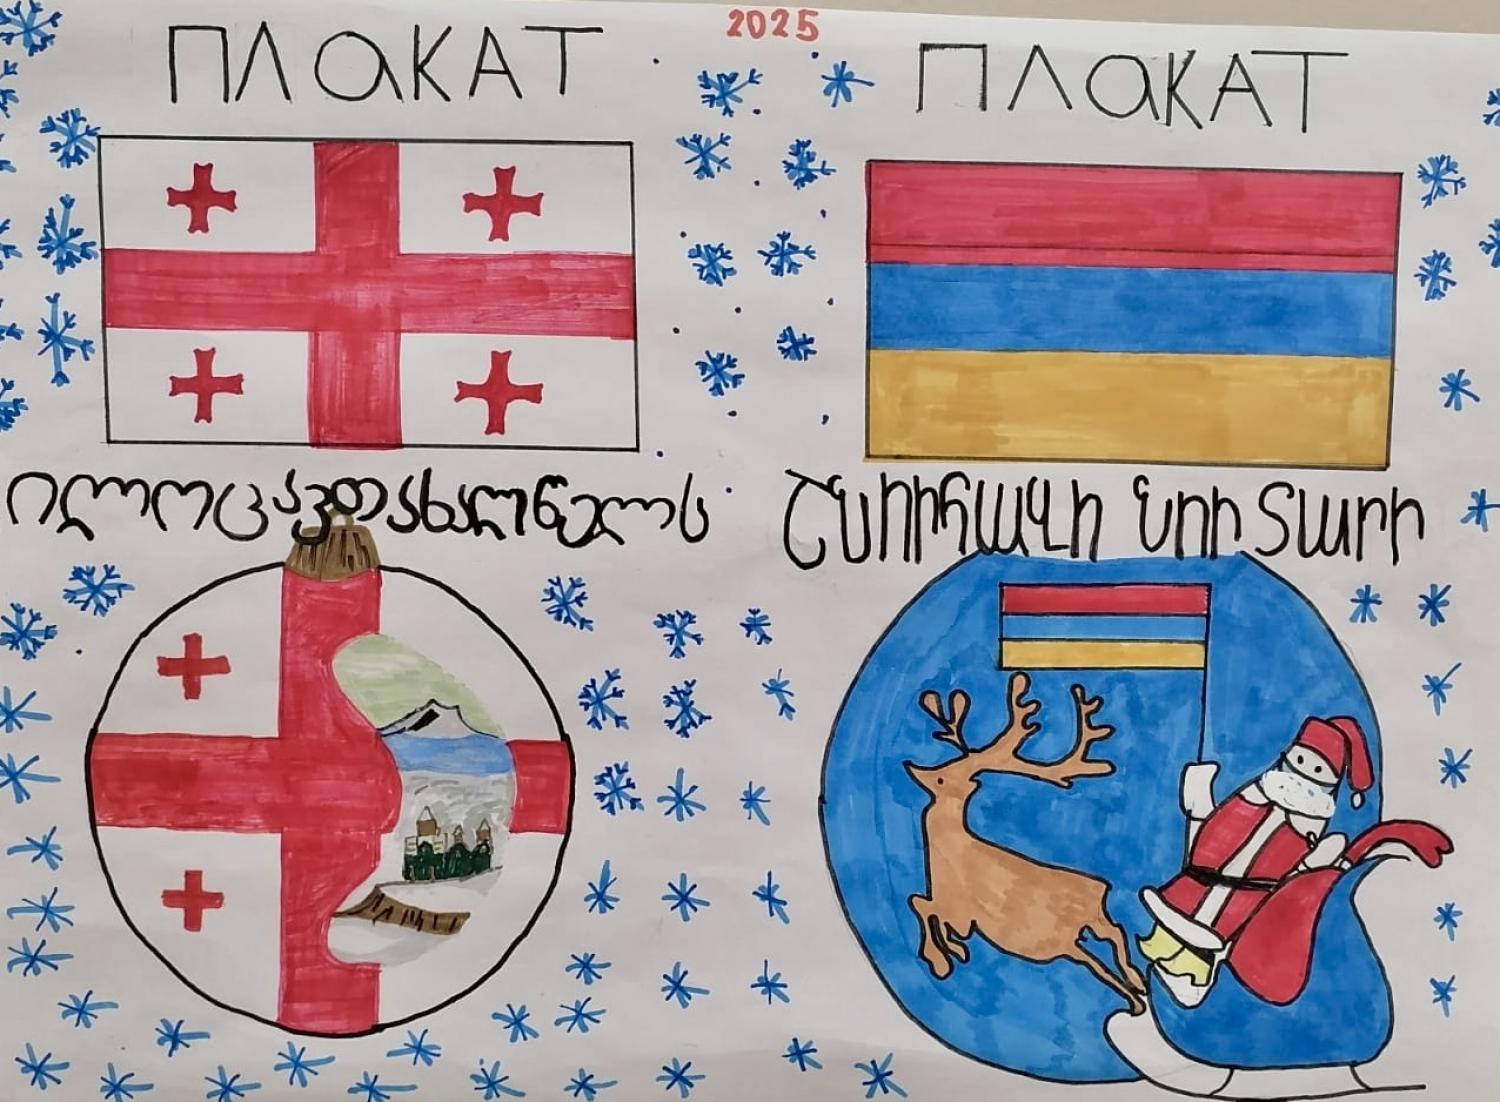 2025
ПЛАКАТ ПЛАКАТ
ილოცავთახალწელს
Շնորհավոր Նոր Տարի